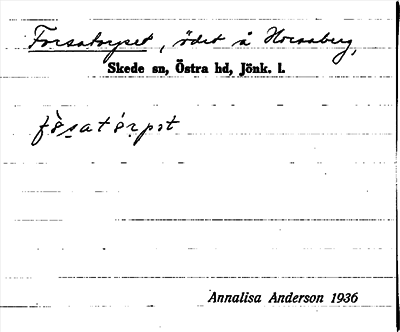 Forsatorpet, ödet å Horsaberg,
Skede sn, Östra hd, Jönk. l.
fösatórpət
Annalisa Anderson 1936